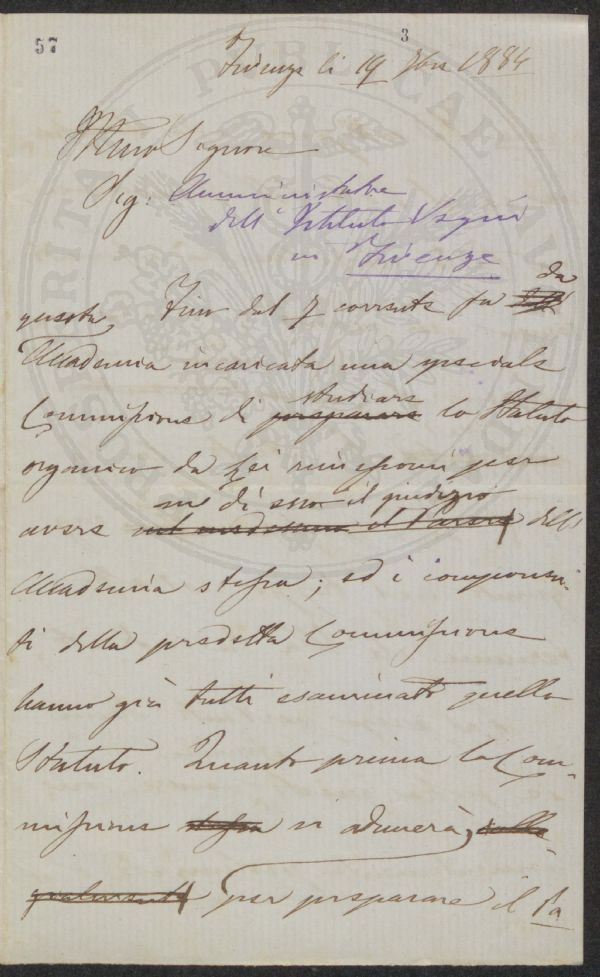 57
3
Firenze li 19 9bre 1884
Illmo Signore
Sig: Amministratore
dell' Istituto Vegni
in Firenze
Fino dal 7 corrente fu da
questa
Accademia incaricata una speciale
studiare
Commissione di preparare lo Statuto
organico da Lei rimessomi per
su di esso il giudizio
avere nel medesimo il Parere dell'
Accademia stessa; ed i componen-
ti della predetta Commissione
hanno già tutti esaminato quello
Statuto. Quanto prima la Com-
missione stessa si adunerà, colle-
gialmente per preparare il Pa